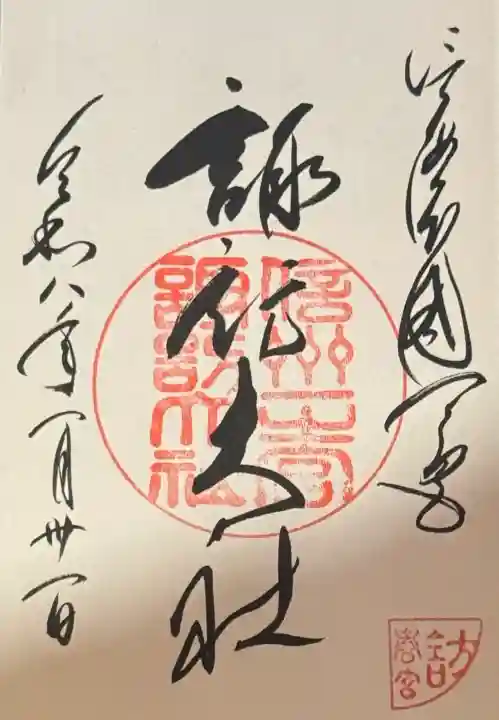 信濃國一之宮
諏訪大社
信州一宮
諏訪大社
令和八年一月卅一日
諏訪
春宮